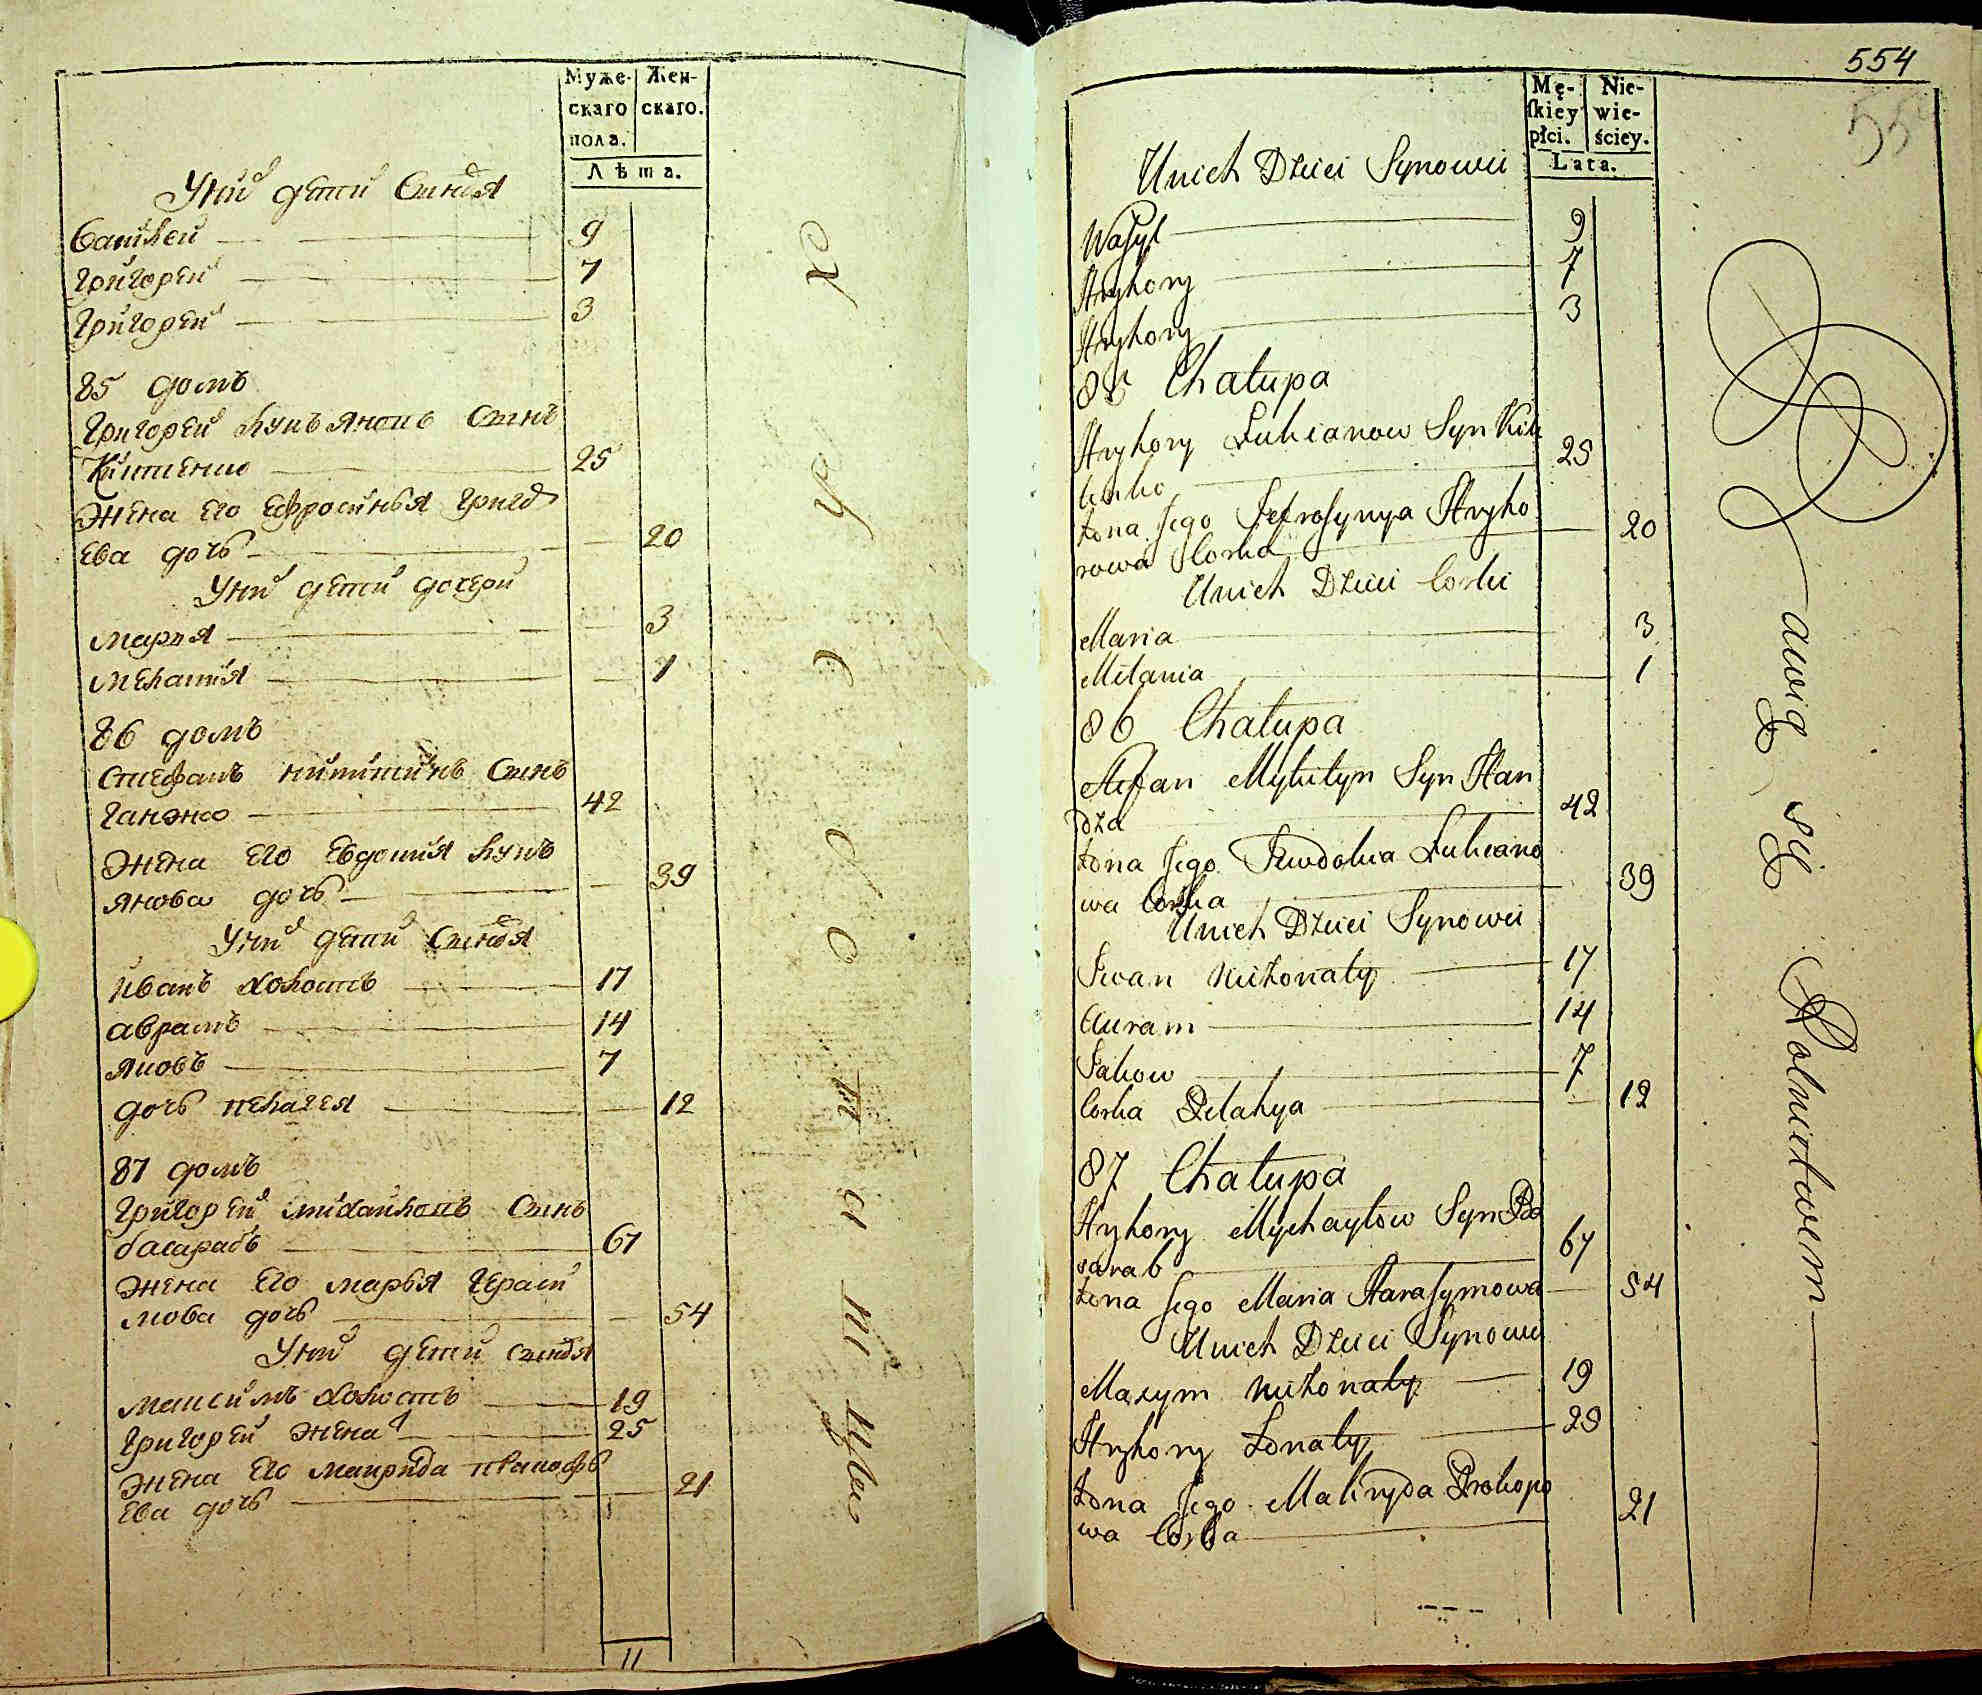 Муже-
скаго
пола.
Жен-
скаго.
Лѣта.
Уни дети Синовя
василеи 9
Григореи 7
Григореи 3
85 домъ
Григореи лукъяновъ Синъ
Китенко 25
жена его ефросинья Григор
ева дочь 20
Уни дети дочери
марья 3
мелания 1
86 домъ
Стефанъ никитинъ Синъ
Ганжа 42
жена его Евдокия лукъ
янова дочь 39
Уни дети Синовя
иванъ холостъ 17
аврамъ 14
яковъ 7
дочь пелагея 12
87 домъ
Григореи михаиловъ Синъ
басарабъ 67
жена его марья Гераси
мова дочь 54
Уни дети синовя
максимъ холостъ 19
Григореи женатъ 25
жена его макрида прокофь
ева дочь 21
11
554
Mę-
skiey
płci.
Nie-
wie-
ściey.
Lata.
Unich Dzieci Synowie
Wasyl 9
Hryhory 7
Hryhory 3
85 Chałupa
Hryhory Łukianow Syn Kit
tenko 25
żona Jego Jefrosynya Hryho
rowa Corka 20
Unich Dzieci Corki
Maria 3
Milania 1
86 Chałupa
Stefan Mykityn Syn Han
dża 42
żona Jego Jewdokia Łukiano
wa Corka 39
Unich Dzieci Synowie
Iwan nieżonaty 17
Auram 14
Jakow 7
Corka Pelahya 12
87 Chałupa
Hryhory Mychayłow Syn Ba
sarab 67
żona Jego Maria Harasymowa 54
Unich Dzieci Synowie
Maxym nieżonaty 19
Hryhory żonaty 25
żona Jego Makryda Prokopo
wa Corka 21
bawią się Rolnictwem